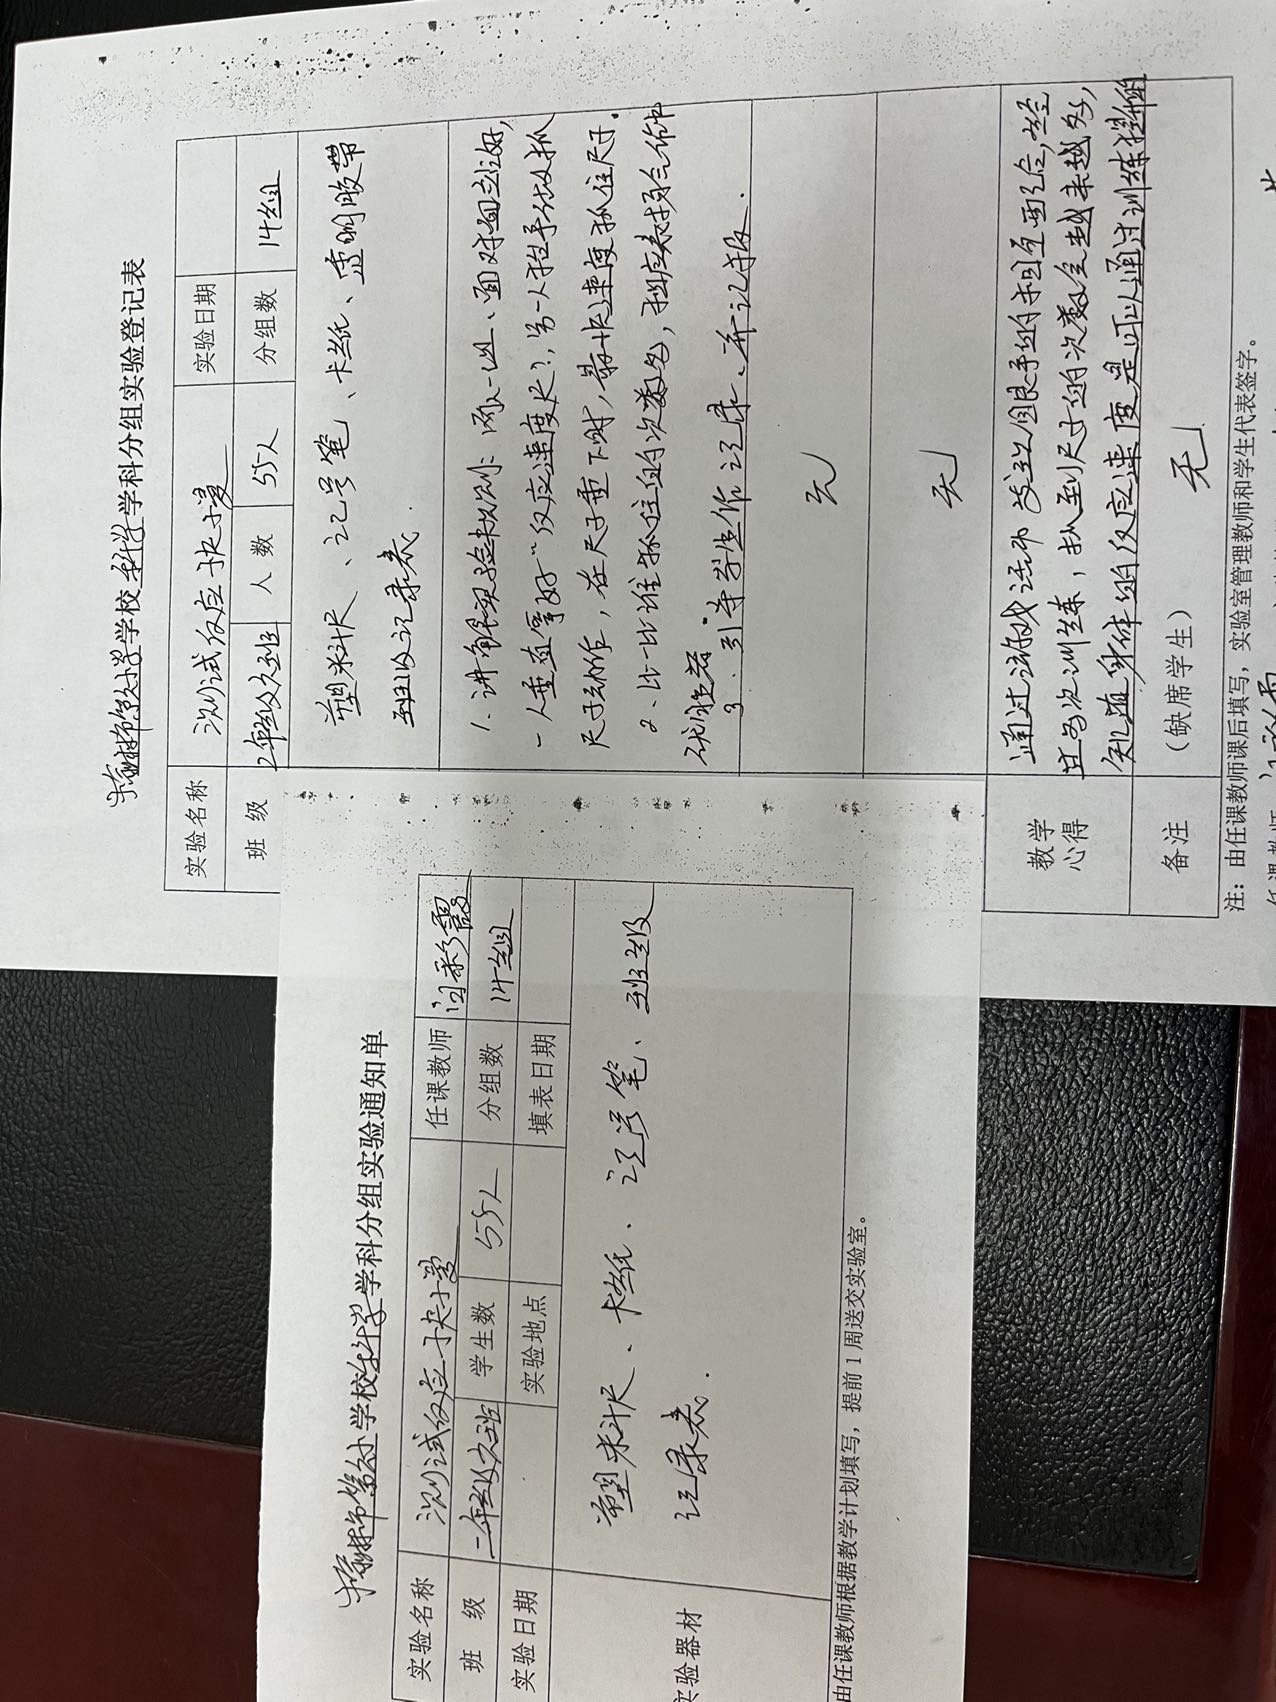 学校科学学科分组实验登记表
实验名称 测试反应快慢 实验日期
班 级 2年级 班 人 数 55人 分组数 14组
塑料尺、记号笔、卡纸、透明胶带
班级记录表.
1. 讲解实验规则: 两人一组、面对面站好,
一人垂直拿好“反应速度尺”,另一人 手做抓
尺子动作,在尺子垂下时,最快速度抓住尺子.
2、比一比谁抓住的次数多,
优胜者
3、引导学生作记录、并记录.
无
无
教学 通过游戏活动 手的相互配合,
心得 多次训练,抓到尺子的次数会越来越多,
知道身体的反应速度是可以通过训练提高的
备注 (缺席学生) 无
注:由任课教师课后填写,实验室管理教师和学生代表签字。
学校科学学科分组实验通知单
实验名称 测试反应快慢 任课教师 闫彩霞
班 级 二年级 班 学生数 55人 分组数 14组
实验日期 实验地点 填表日期
塑料尺、卡纸、记号笔、班级
验器材 记录表.
由任课教师根据教学计划填写,提前1周送交实验室。